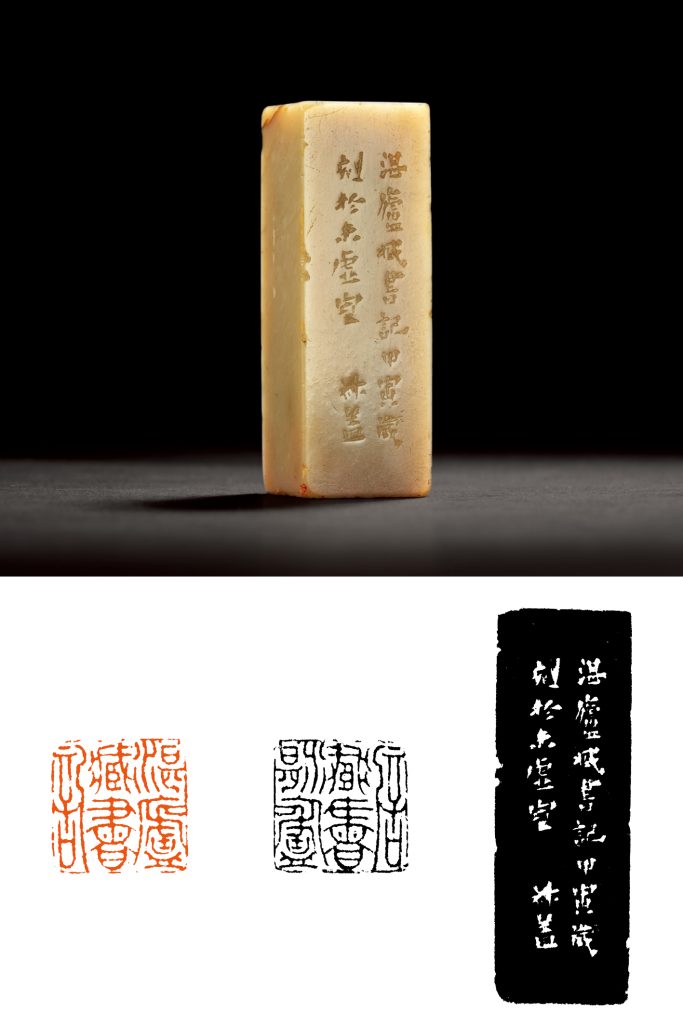 湛盧臧書記甲寅歲
刻於未虛室
湛盧藏書記
湛盧藏書記
湛盧臧書記甲寅歲
刻於未虛室